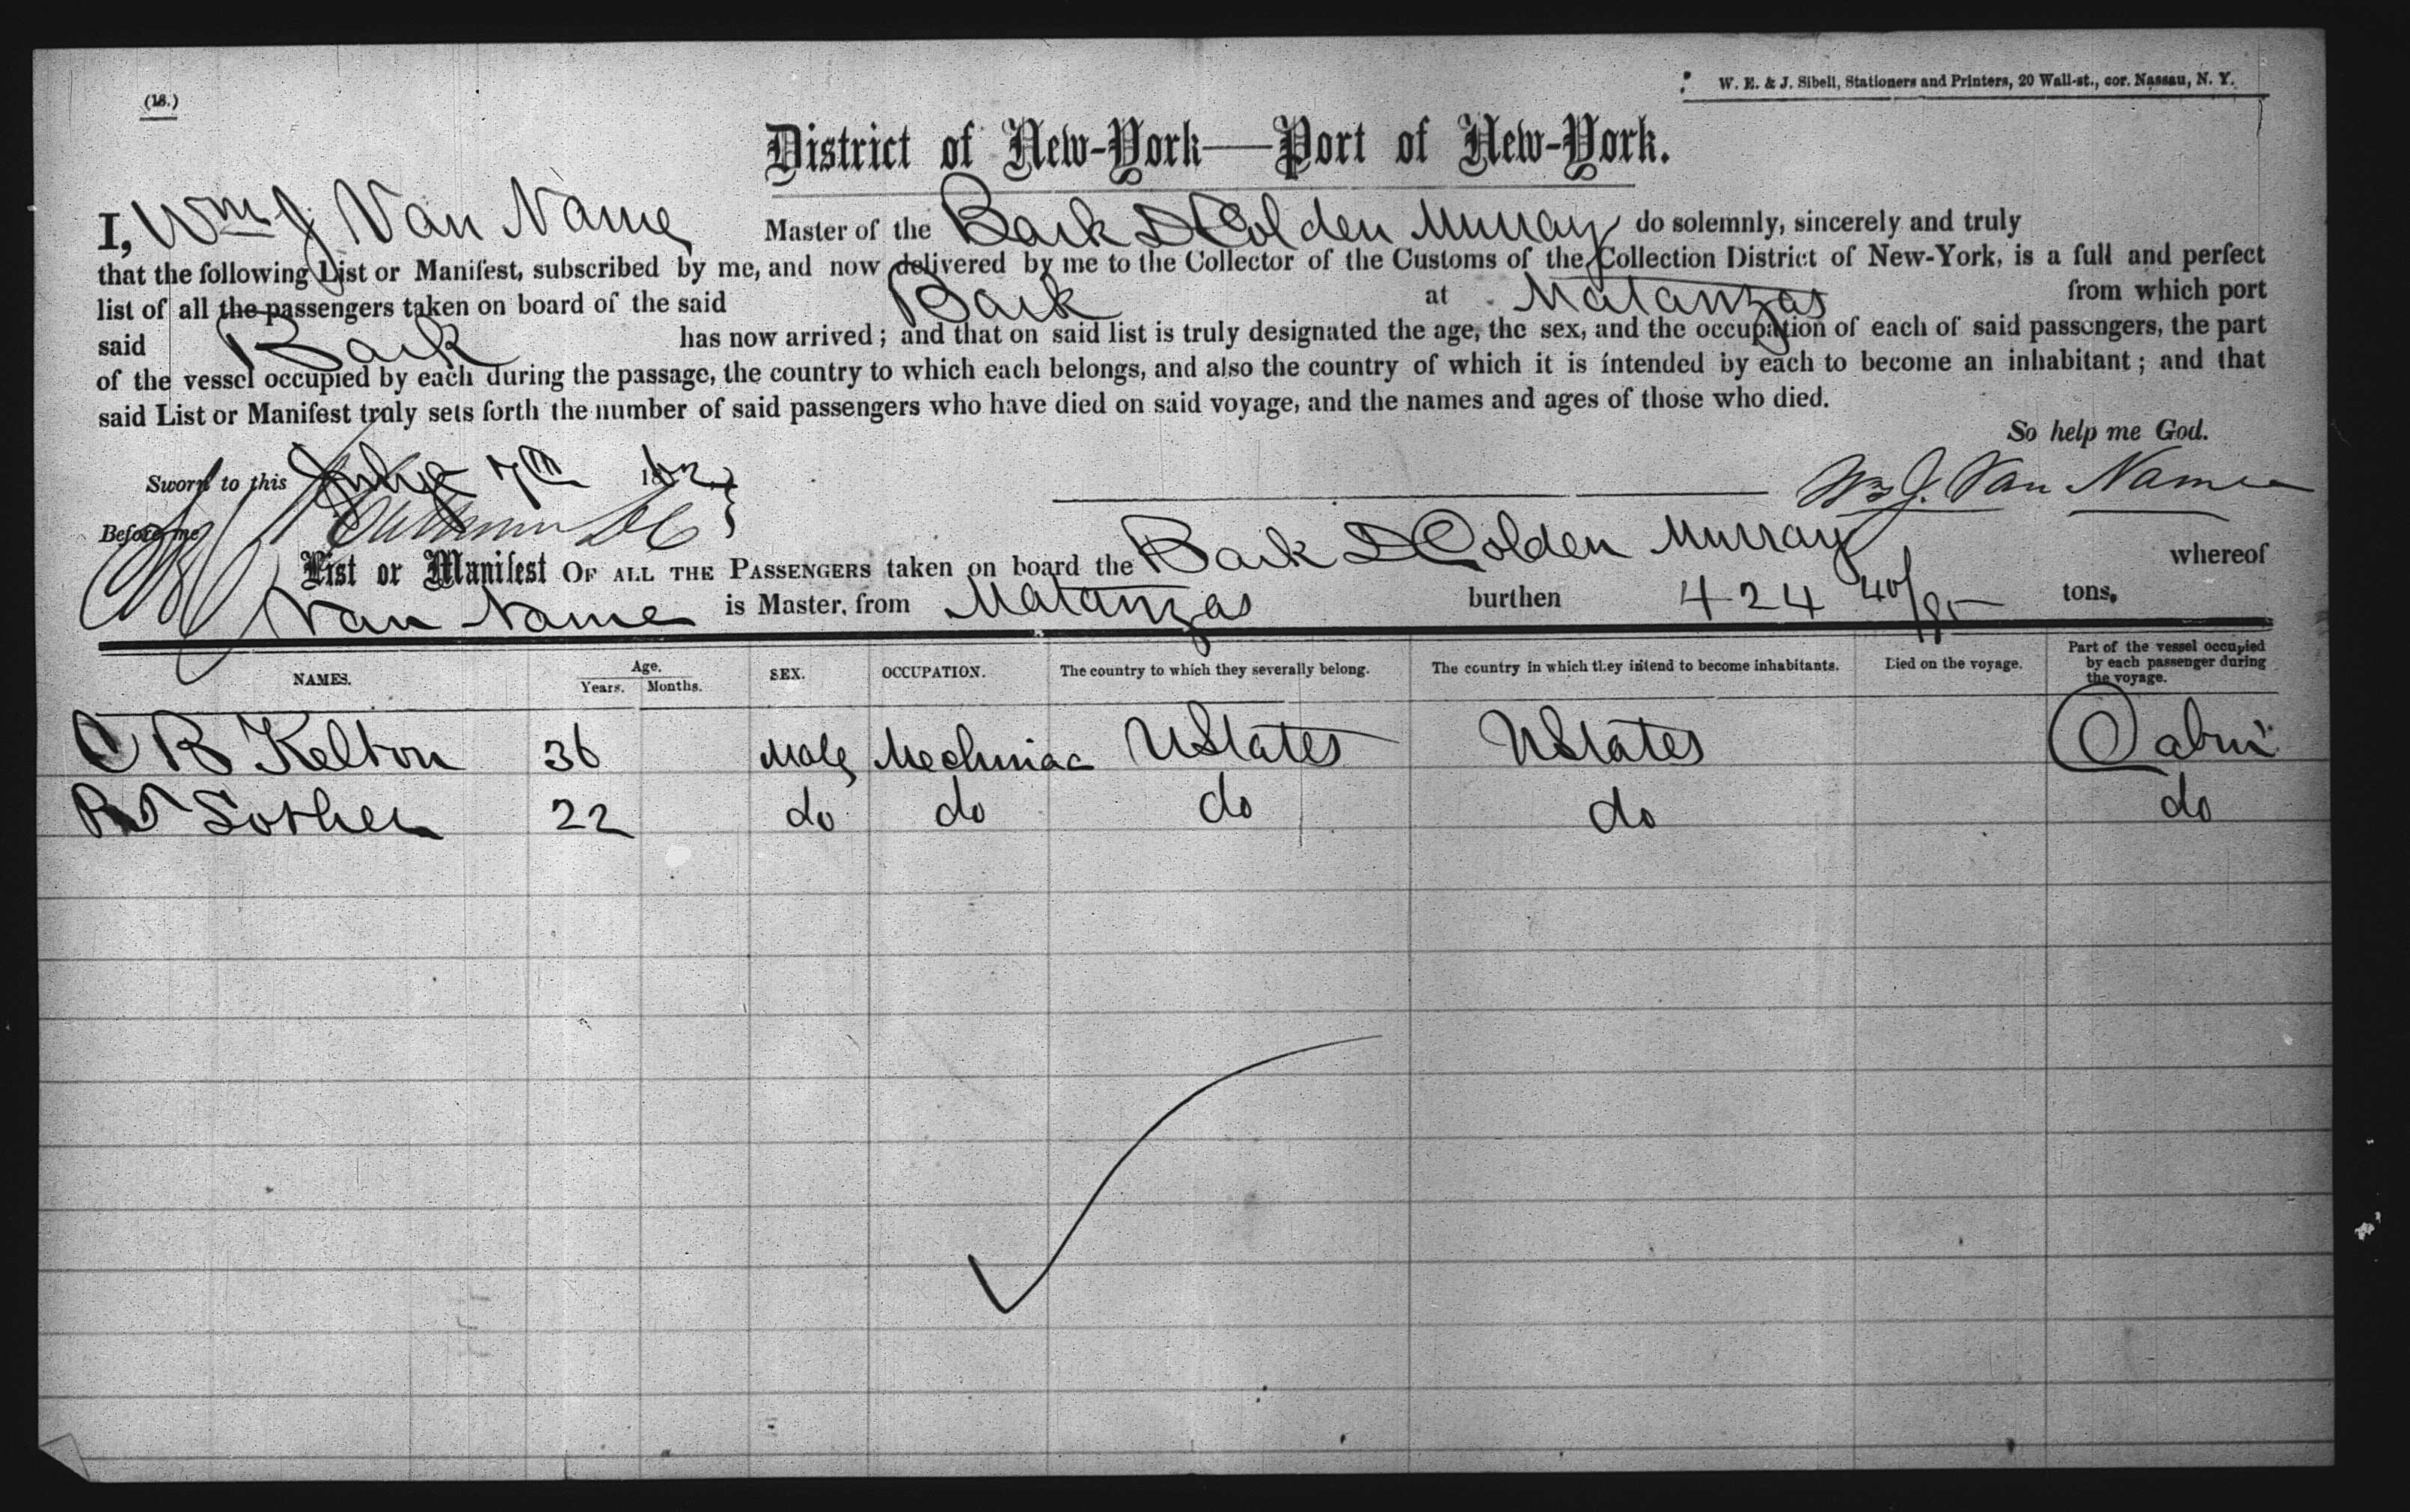 (18.)
W. E. & J. Sibell, Stationers and Printers, 20 Wall-st., cor. Nassau, N. Y.
District of New-York—Port of New-York.
I, Wm J Van Name Master of the Bark D Colden Murray do solemnly, sincerely and truly
that the following List or Manifest, subscribed by me, and now delivered by me to the Collector of the Customs of the Collection District of New-York, is a full and perfect
list of all the passengers taken on board of the said Bark at Matanzas from which port
said Bark has now arrived; and that on said list is truly designated the age, the sex, and the occupation of each of said passengers, the part
of the vessel occupied by each during the passage, the country to which each belongs, and also the country of which it is intended by each to become an inhabitant; and that
said List or Manifest truly sets forth the number of said passengers who have died on said voyage, and the names and ages of those who died.
So help me God.
Sworn to this July 7th 1862 Wm J. Van Name
Before me
List or Manifest OF ALL THE PASSENGERS taken on board the Bark D Colden Murray whereof
Van Name is Master, from Matanzas burthen 424 40/95 tons.
NAMES. Age. Years. Months. SEX. OCCUPATION. The country to which they severally belong. The country in which they intend to become inhabitants. Died on the voyage. Part of the vessel occupied by each passenger during the voyage.
C B Kelton 36 Male Mechniac UStates UStates Cabin
Sother 22 do do do do do